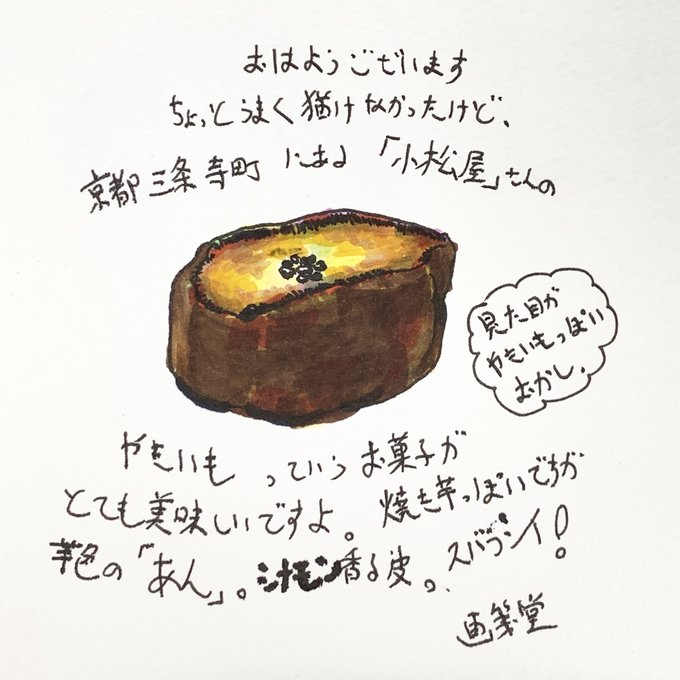 おはようございます
ちょっとうまく描けなかったけど、
京都三条寺町にある「小松屋」さんの
見た目が
やきいもっぽい
おかし。
やきいもっていうお菓子が
とても美味しいですよ。焼き芋っぽいですが
芋色の「あん」。シナモン香る皮。、スバラシイ！
画箋堂